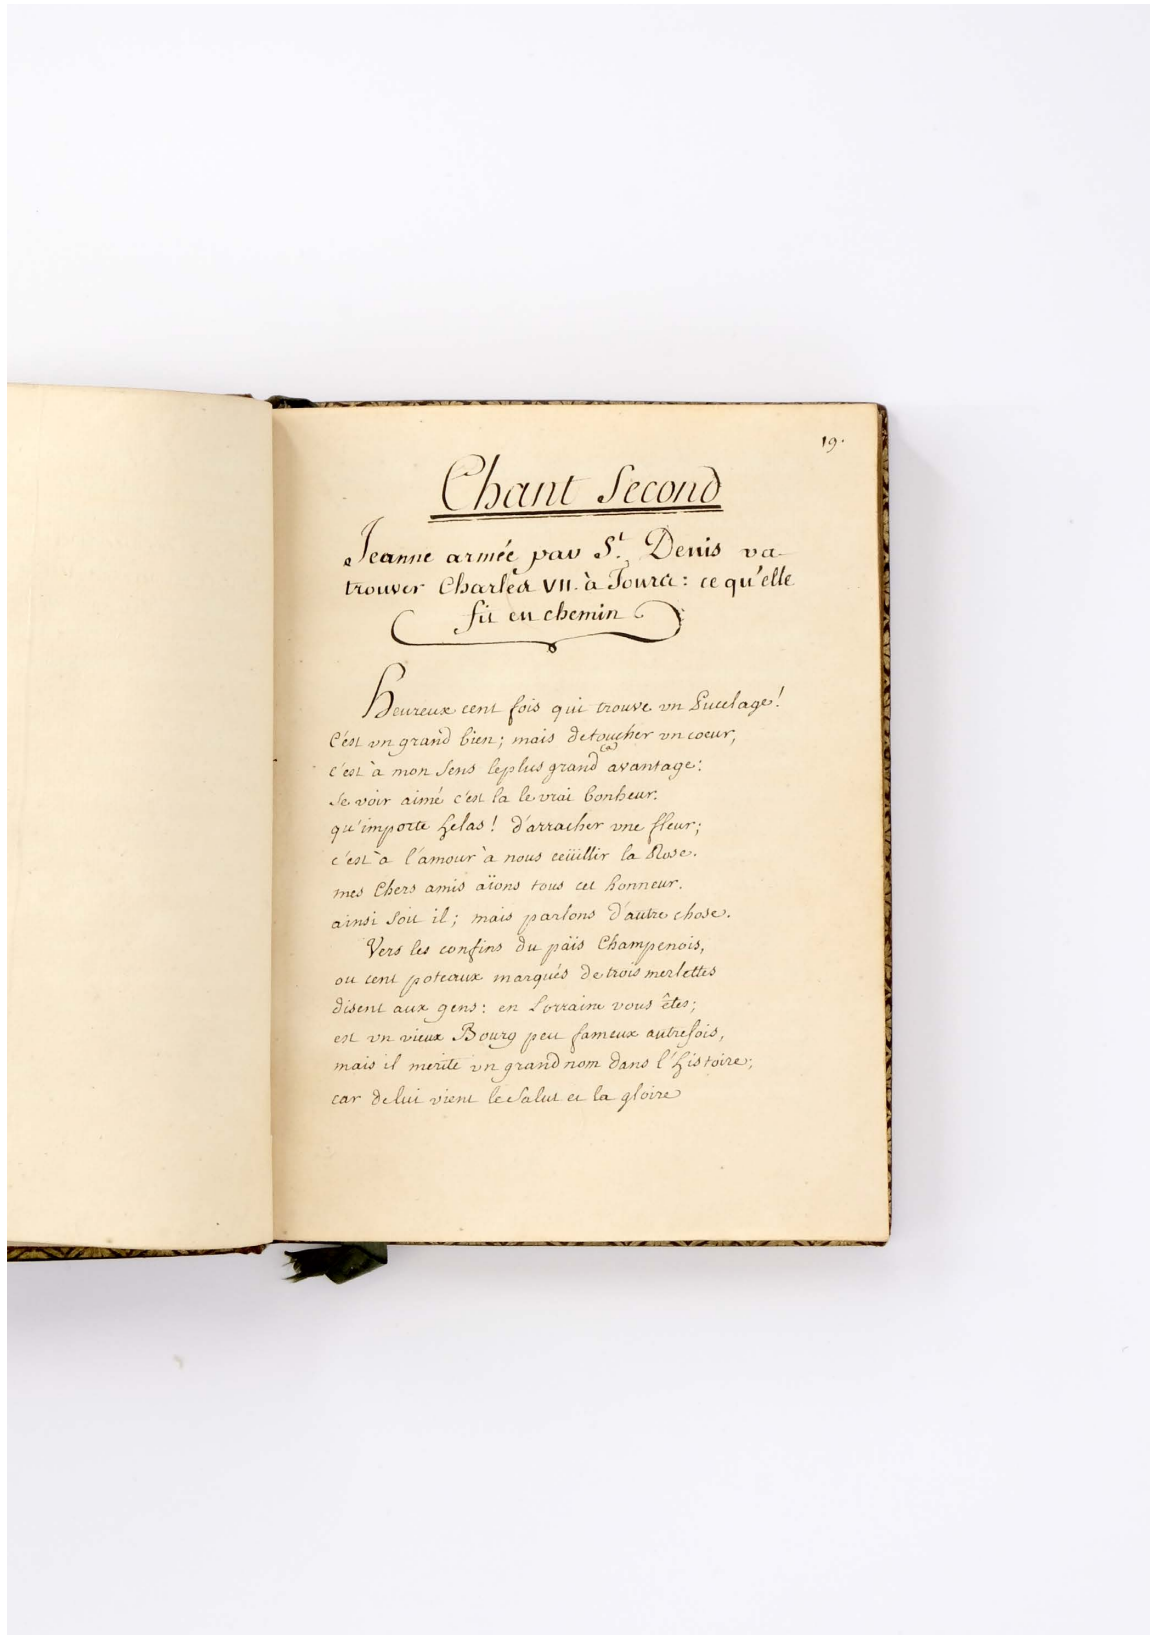 19.
Chant Second
Jeanne armée par S.t Denis va
trouver Charles VII. à Tours: ce qu'elle
fit en chemin
Heureux cent fois qui trouve vn Pucelage!
C'est vn grand bien; mais de toucher vn coeur,
c'est à mon sens le plus grand avantage:
se voir aimé c'est la le vrai bonheur.
qu'importe helas! d'arracher vne fleur;
c'est à l'amour à nous ceüillir la Rose.
mes Chers amis aïons tous cet honneur.
ainsi soit il; mais parlons d'autre chose.
Vers les confins du païs Champenois,
ou cent poteaux marqués de trois merlettes
disent aux gens: en Lorraine vous êtes;
est vn vieux Bourg peu fameux autrefois,
mais il merite vn grand nom dans l'histoire;
car de lui vient le salut et la gloire